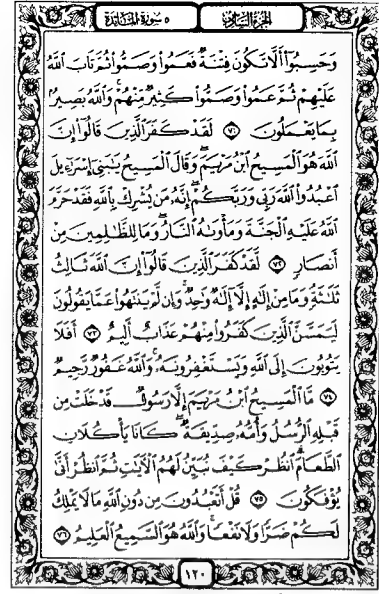 الجزء السادس
٥ سورة المائدة
وَحَسِبُوٓا۟ أَلَّا تَكُونَ فِتْنَةٌ فَعَمُوا۟ وَصَمُّوا۟ ثُمَّ تَابَ ٱللَّهُ
عَلَيْهِمْ ثُمَّ عَمُوا۟ وَصَمُّوا۟ كَثِيرٌ مِّنْهُمْ ۚ وَٱللَّهُ بَصِيرٌۢ
بِمَا يَعْمَلُونَ ٧١ لَقَدْ كَفَرَ ٱلَّذِينَ قَالُوٓا۟ إِنَّ
ٱللَّهَ هُوَ ٱلْمَسِيحُ ٱبْنُ مَرْيَمَ ۖ وَقَالَ ٱلْمَسِيحُ يَٰبَنِىٓ إِسْرَٰٓءِيلَ
ٱعْبُدُوا۟ ٱللَّهَ رَبِّى وَرَبَّكُمْ ۖ إِنَّهُۥ مَن يُشْرِكْ بِٱللَّهِ فَقَدْ حَرَّمَ
ٱللَّهُ عَلَيْهِ ٱلْجَنَّةَ وَمَأْوَىٰهُ ٱلنَّارُ ۖ وَمَا لِلظَّٰلِمِينَ مِنْ
أَنصَارٍ ٧٢ لَّقَدْ كَفَرَ ٱلَّذِينَ قَالُوٓا۟ إِنَّ ٱللَّهَ ثَالِثُ
ثَلَٰثَةٍ ۘ وَمَا مِنْ إِلَٰهٍ إِلَّآ إِلَٰهٌ وَٰحِدٌ ۚ وَإِن لَّمْ يَنتَهُوا۟ عَمَّا يَقُولُونَ
لَيَمَسَّنَّ ٱلَّذِينَ كَفَرُوا۟ مِنْهُمْ عَذَابٌ أَلِيمٌ ٧٣ أَفَلَا
يَتُوبُونَ إِلَى ٱللَّهِ وَيَسْتَغْفِرُونَهُۥ ۚ وَٱللَّهُ غَفُورٌ رَّحِيمٌ
٧٤ مَّا ٱلْمَسِيحُ ٱبْنُ مَرْيَمَ إِلَّا رَسُولٌ قَدْ خَلَتْ مِن
قَبْلِهِ ٱلرُّسُلُ وَأُمُّهُۥ صِدِّيقَةٌ ۖ كَانَا يَأْكُلَانِ
ٱلطَّعَامَ ۗ ٱنظُرْ كَيْفَ نُبَيِّنُ لَهُمُ ٱلْءَايَٰتِ ثُمَّ ٱنظُرْ أَنَّىٰ
يُؤْفَكُونَ ٧٥ قُلْ أَتَعْبُدُونَ مِن دُونِ ٱللَّهِ مَا لَا يَمْلِكُ
لَكُمْ ضَرًّا وَلَا نَفْعًا ۚ وَٱللَّهُ هُوَ ٱلسَّمِيعُ ٱلْعَلِيمُ ٧٦
١٢٠